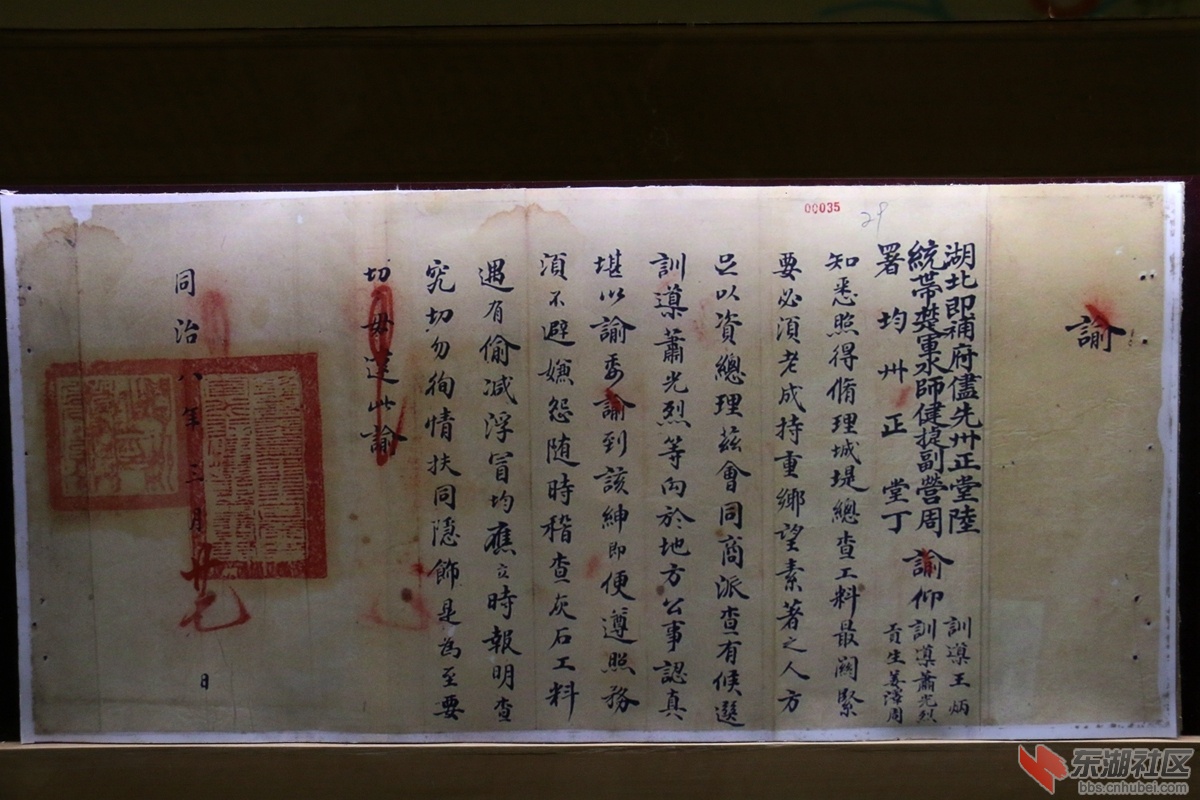 諭
湖北即補府儘先卅正堂陸
統帶楚軍水師健捷副營周
署均卅正堂丁
諭仰
訓導王炳
訓導蕭光烈
貢生姜澤周
知悉照得脩理城堤總查工料最關緊
要必須老成持重鄉望素著之人方
足以資總理茲會同商派查有候選
訓導蕭光烈等向於地方公事認真
堪以諭委諭到該紳即便遵照務
須不避嫌怨隨時稽查灰石工料
遇有偷减浮冒均應立時報明查
究切勿徇情扶同隱飾是為至要
切毋違此諭
同治八年三月廿七日
00035
29
东湖社区
bbs.cnhubei.com